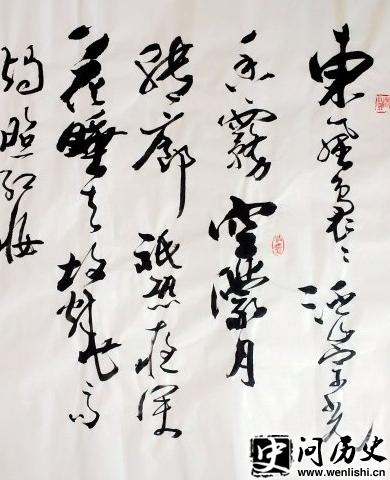 東風嫋〻泛崇光
香霧空濛月
轉廊祗恐夜深
花睡去故燒高
燭照紅妝
史 问历史
www.wenlishi.cn